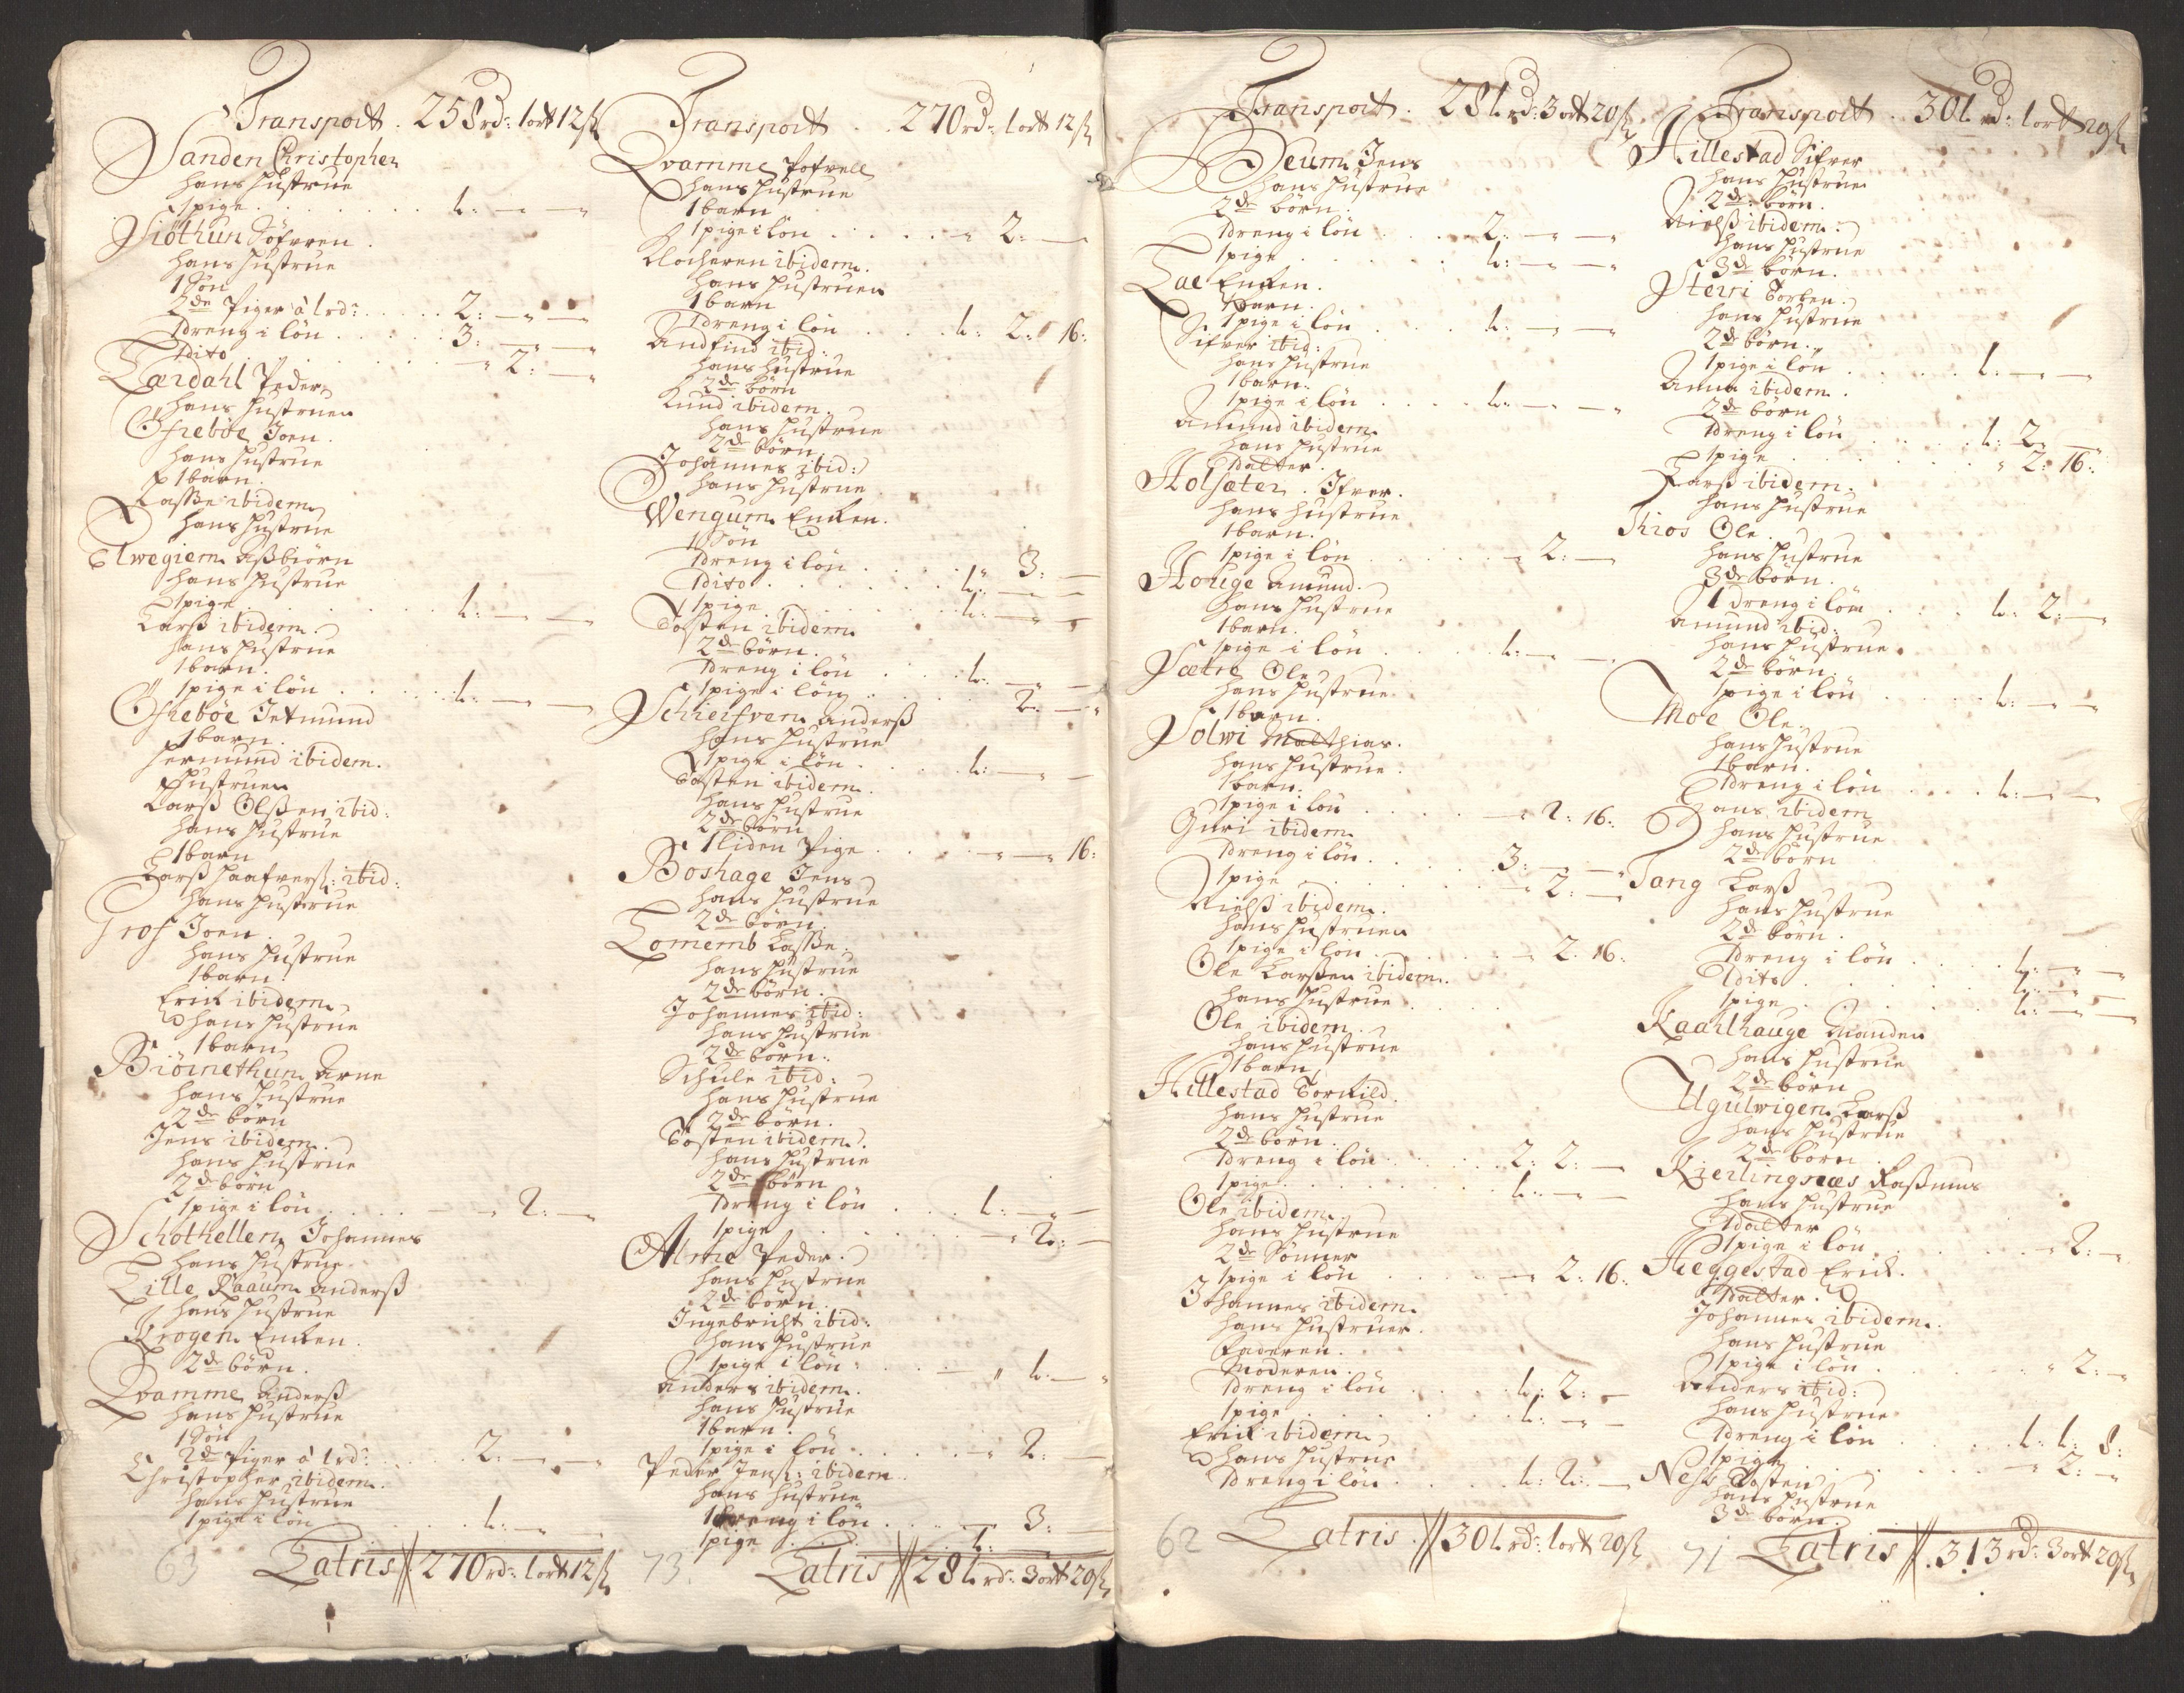 Transport . 258 rd: 1 ort 12 ß
Sanden Christopher
hans hustrue
1 pige . . . . . 1: — „
Siöthun Söfren .
hans hustrue
1 Sön
2de Piger à 1 rd: . . . 2: — „ —
1 dreng i lön . . . . 3: — „
1 dito . . . . . „ 2: — „
Lærdahl Peder
hans hustruen
Ofreböe Joen .
hans hustrue
1 barn .
Lasse ibidem
hans hustrue
Elwegiem Assbiörn
hans hustrue
1 pige . . . . . 1: — „
Larß ibidem
hans hustrue
1 barn .
1 pige i lön . . . . 1: — „
Ofreböe Jetmund
1 barn .
hermund ibidem .
hustruen
Larß Olßen ibid:
hans hustrue
1 barn
Larß haafverß: ibid:
hans hustrue
Grof Joen .
hans hustrue
1 barn .
Erick ibidem
hans hustrue
1 barn
Biörnethun Arne
hans hustrue
2de börn
Jens ibidem .
hans hustrue
2de börn
1 pige i lön . . . . „ 2: — „
Schothellern Johannes
hans hustrue
Lille Raaum Anderß
hans hustrue
Krogen Encken .
2de börn .
Qvamme Anderß
hans hustrue
1 Sön
2de Piger à 1 rd: . . . 2: — „
Christopher ibidem .
hans hustrue
1 pige i lön . . . . 1: — „
63 Latris // 270 rd: 1 ort 12 ß
Transport . . 270 rd: 1 ort 12 ß
Qvamme Pofvell
hans hustrue
1 barn
1 pige i lön . . . . „ 2: —
Klocheren ibidem .
hans hustruen
1 barn
1 dreng i lön . . . 1: 2: 16:
Andfind ibid:
hans hustrue
2de börn
Knud ibidem .
hans hustrue
2de börn
Johannes ibid:
hans hustrue
Wengum Encken .
1 Sön
1 dreng i lön . . . . „ 3: —
1 dito . . . . . 1: — —
1 pige . . . . . 1: — „
Tosten ibidem
2de börn .
1 dreng i lön . . . 1: — „ —
1 pige i lön . . . . 2: — „
Schieifven Anderß
hans hustrue
1 pige i lön . . . . 1: — „ —
Tosten ibidem .
hans hustrue
2de börn
1 liden Pige . . . . „ — „ 16:
Boshage Jens
hans hustrue
2de börn .
Lomemb Lasse .
hans hustrue
2de börn .
Johannes ibid:
hans hustrue
2de börn .
Schule ibid:
hans hustrue
2de börn .
Tosten ibidem .
hans hustrue
2de börn
1 dreng i lön . . . 1: — „ —
1 pige . . . . . „ 2: —
Alme Peder .
hans hustrue
2de börn .
Ingebricht ibid:
hans hustrue
1 pige i lön . . . . „ 1: — „
Anders ibidem .
hans hustrue
1 barn .
1 pige i lön . . . . „ 2: —
Peder Jenß: ibidem
hans hustrue
1 dreng i lön . . . . 3: —
1 pige . . . . . 1:
73 Latris // 281 rd: 3 ort 20 ß
Transport . 281 rd: 3 ort 20 ß
Deum Jens
hans hustrue
2de börn .
1 dreng i lön . . . 2: — „ —
1 pige . . . . . 1: — „ —
Lae Encken .
1 barn .
1 pige i lön . . . . 1: — „ —
Sifver ibid:
hans hustrue
1 barn .
1 pige i lön . . . . 1: — „ —
Amund ibidem
hans hustrue
1 datter .
Holsæter . Ifver .
hans hustrue
1 barn .
1 pige i lön . . . . „ 2: —
Houge Amund .
hans hustrue
1 barn .
1 pige i lön . . . . 1: — „ —
Sætre Ole
hans hustrue
1 barn .
Solwi Matthias .
hans hustrue .
1 barn .
1 pige i lön . . . . „ 2: 16:
Guri ibidem
1 dreng i lön . . . . 3: — „
1 pige . . . . . „ 2: —
Nielß ibidem .
hans hustruen
1 pige i lön . . . . „ 2: 16:
Ole Larßen ibidem .
hans hustrue
Ole ibidem .
hans hustrue
1 barn
Hillestad Torkild .
hans hustrue
2de börn .
1 dreng i lön . . . 2: 2: —
1 pige . . . . . 1: — „ —
Ole ibidem
hans hustrue
2de Sönner
1 pige i lön . . . . „ 2: 16:
Johannes ibidem .
hans hustruer .
Faderen .
Moderen .
1 dreng i lön . . . 1: 2: —
1 pige . . . . . 1: — „ —
Erick ibidem
hans hustrue
1 dreng i lön . . . 1: 2: —
62 Latris // 301 rd: 1 ort 20 ß
Transport . . 301 rd: 1 ort 20 ß
Hillestad Sifver
hans hustrue
2de börn .
Nielß ibidem .
hans hustrue
3de börn .
Steiri Torben .
hans hustrue
2de börn .
1 pige i lön . . . . 1: — „ —
Anna ibidem .
2de börn
1 dreng i lön . . . 1: 2: —
1 pige . . . . . „ 2: 16:
Larß ibidem .
hans hustrue
Kios Ole .
hans hustrue
3de börn .
1 dreng i lön . . . 1: 2: — „
Amund ibid:
hans hustrue .
2de börn .
1 pige i lön . . . . 1: — „ —
Moe Ole .
hans hustrue
1 barn .
1 dreng i lön . . . 1: — „ —
Hans ibidem
hans hustrue
2de börn
Tang Larß
hans hustrue
2de börn .
1 dreng i lön . . . 1: — „ —
1 dito . . . . . 1: — „ —
1 pige . . . . . 1: — „ —
Kaarlhauge Manden
hans hustrue
2de börn
Ugulwigen Larß
hans hustrue
2de börn .
Kierlingnæs Raßmus
hans hustrue
1 datter
1 pige i lön . . . . „ 2: — „
Heggestad Erick .
1 datter .
Johannes ibidem .
hans hustrue
1 pige i lön . . . . „ 2: — „
Anders ibid:
hans hustrue
1 dreng i lön . . . 1: 1: 8:
1 pige . . . . . „ 2: — „
Nes Tosten
hans hustrue
3de börn .
71 Latris // 313 rd: 3 ort 20 ß